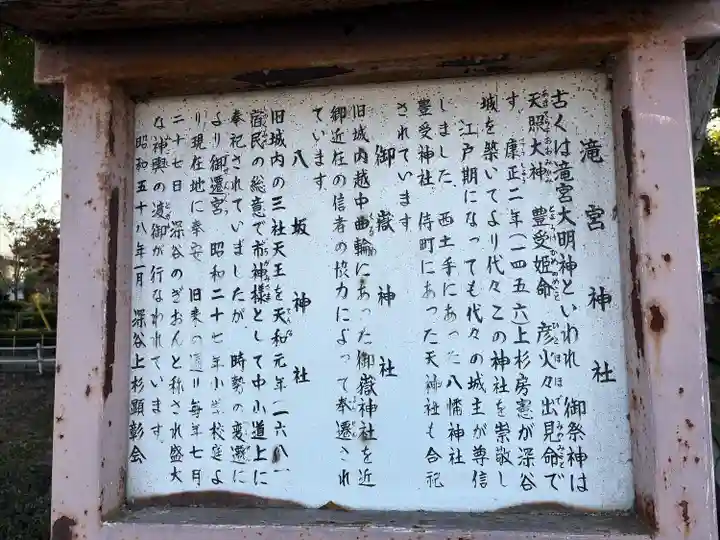 滝宮神社
古くは滝宮大明神といわれ 御祭神は
天照大神 豊受姫命 彦火々出見命で
す 康正二年(一四五六)上杉房憲が深谷
城を築いてより代々この神社を崇敬し
江戸期になっても代々の城主が尊信
しました 西土手にあった八幡神社
豊受神社 侍町にあった天神社も合祀
されています
御嶽神社
旧城内越中曲輪にあった御嶽神社を近
御近在の信者の協力によって奉遷され
ています
八坂神社
旧城内の三社天王を天和元年(一六八一
宿民の総意で市神様として中小道上に
奉祀されていましたが 時勢の変遷に
より御遷宮 昭和二十七年小学校庭よ
り現在地に奉安 旧来の通り毎年七月
二十七日 深谷のぎおんと称され盛大
な神輿の渡御が行なわれています
昭和五十八年一月 深谷上杉顕彰会